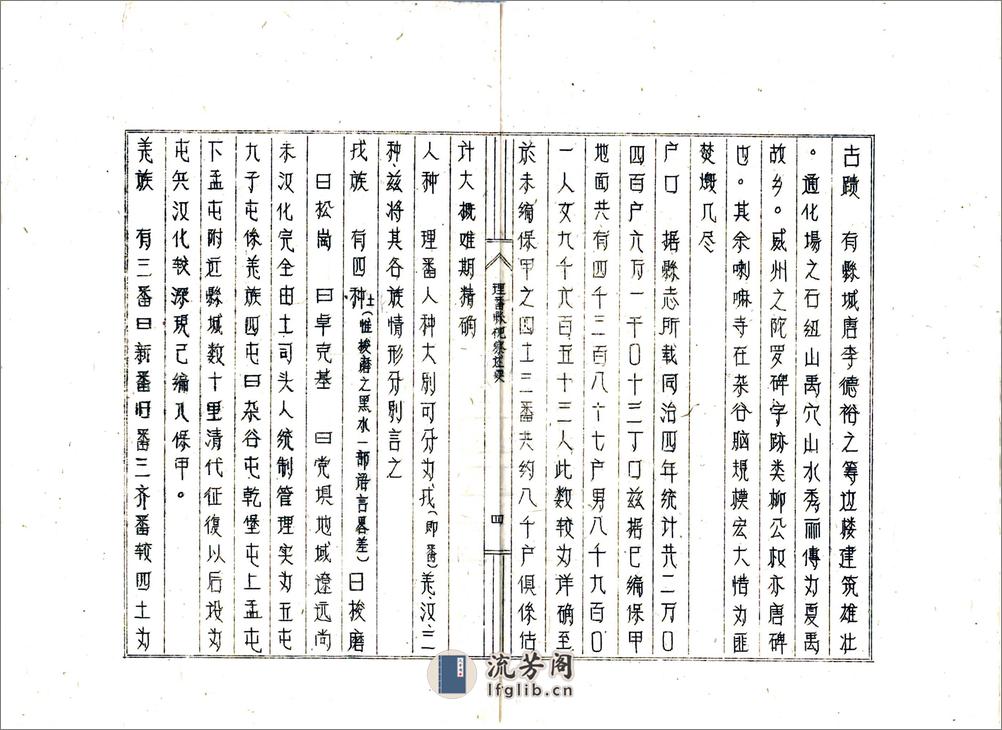 古蹟　有縣城唐李德裕之筹边楼建筑雄壮
。通化場之石纽山禹穴山水秀丽傳为夏禹
故乡。威州之陀罗碑字跡类柳公权亦唐碑
也。其余喇嘛寺在杂谷脑規模宏大惜为匪
焚燬几尽
户口　据縣志所载同治四年统计共二万〇
四百户六万一千〇十三丁口兹据已编保甲
地面共有四千三百八十七户男八千九百〇
一人女九千六百五十三人此数较为详确至
於未编保甲之四土三番共约八千户俱係估
理番縣視察述要
四
计大概难期精确
人种　理番人种大别可分为戎(即番)羌、汉、三
种、兹将其各族情形分别言之
戎族　有四种土(惟梭磨之黑水一部语言畧差)曰梭磨
曰松崗　曰卓克基　曰党埧地域遼远尚
未汉化完全由土司头人统制管理实为五屯
九子屯係羌族四屯曰杂谷屯乾堡屯上孟屯
下孟屯附近縣城数十里清代征復以后设为
屯兵汉化较深現已编入保甲。
羌族　有三番曰新番旧番三齐番较四土为
流芳阁
lfglib.cn